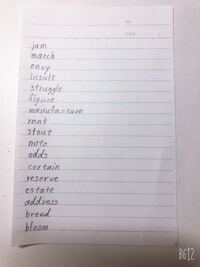 No.
DATE / /
jam
match
envy
insult
struggle
figure
manufacture
rent
stout
note
odds
certain
reserve
estate
address
breed
bloom
B612